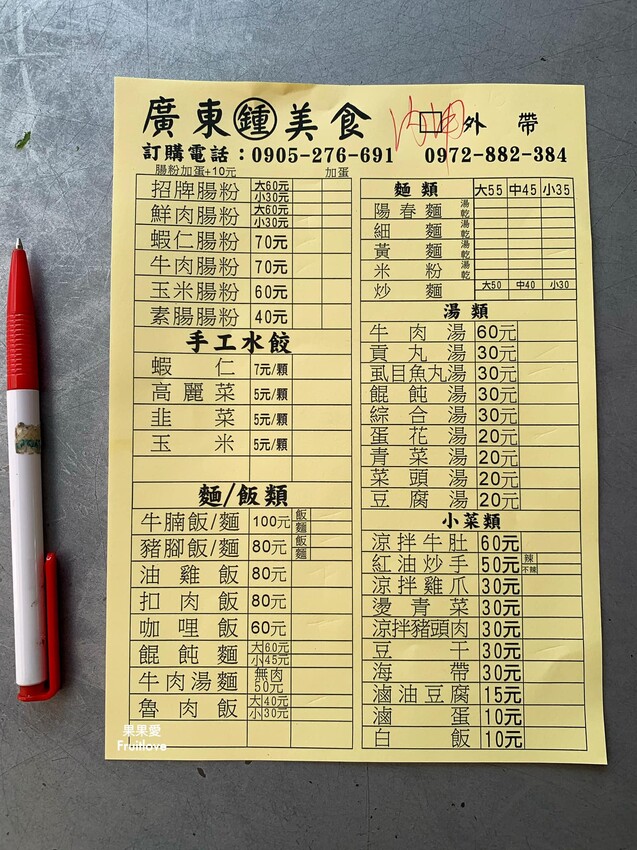 廣東鍾美食 內用 外帶
訂購電話：0905-276-691 0972-882-384
腸粉加蛋+10元 加蛋
招牌腸粉 大60元 小30元
鮮肉腸粉 大60元 小30元
蝦仁腸粉 70元
牛肉腸粉 70元
玉米腸粉 60元
素腸腸粉 40元
手工水餃
蝦仁 7元/顆
高麗菜 5元/顆
韭菜 5元/顆
玉米 5元/顆
麵/飯類
牛腩飯/麵 100元 飯 麵
豬腳飯/麵 80元 飯 麵
油雞飯 80元
扣肉飯 80元
咖哩飯 60元
餛飩麵 大60元 小45元
牛肉湯麵 無肉 50元
魯肉飯 大40元 小30元
麵類 大55 中45 小35
陽春麵 湯 乾
細麵 湯 乾
黃麵 湯 乾
米粉 湯 乾
炒麵 大50 中40 小30
湯類
牛肉湯 60元
貢丸湯 30元
虱目魚丸湯 30元
餛飩湯 30元
綜合湯 30元
蛋花湯 20元
青菜湯 20元
菜頭湯 20元
豆腐湯 20元
小菜類
涼拌牛肚 60元
紅油炒手 50元 辣 不辣
涼拌雞爪 30元
燙青菜 30元
涼拌豬頭肉 30元
豆干 30元
海帶 30元
滷油豆腐 15元
滷蛋 10元
白飯 10元
果果愛
Fruitlove